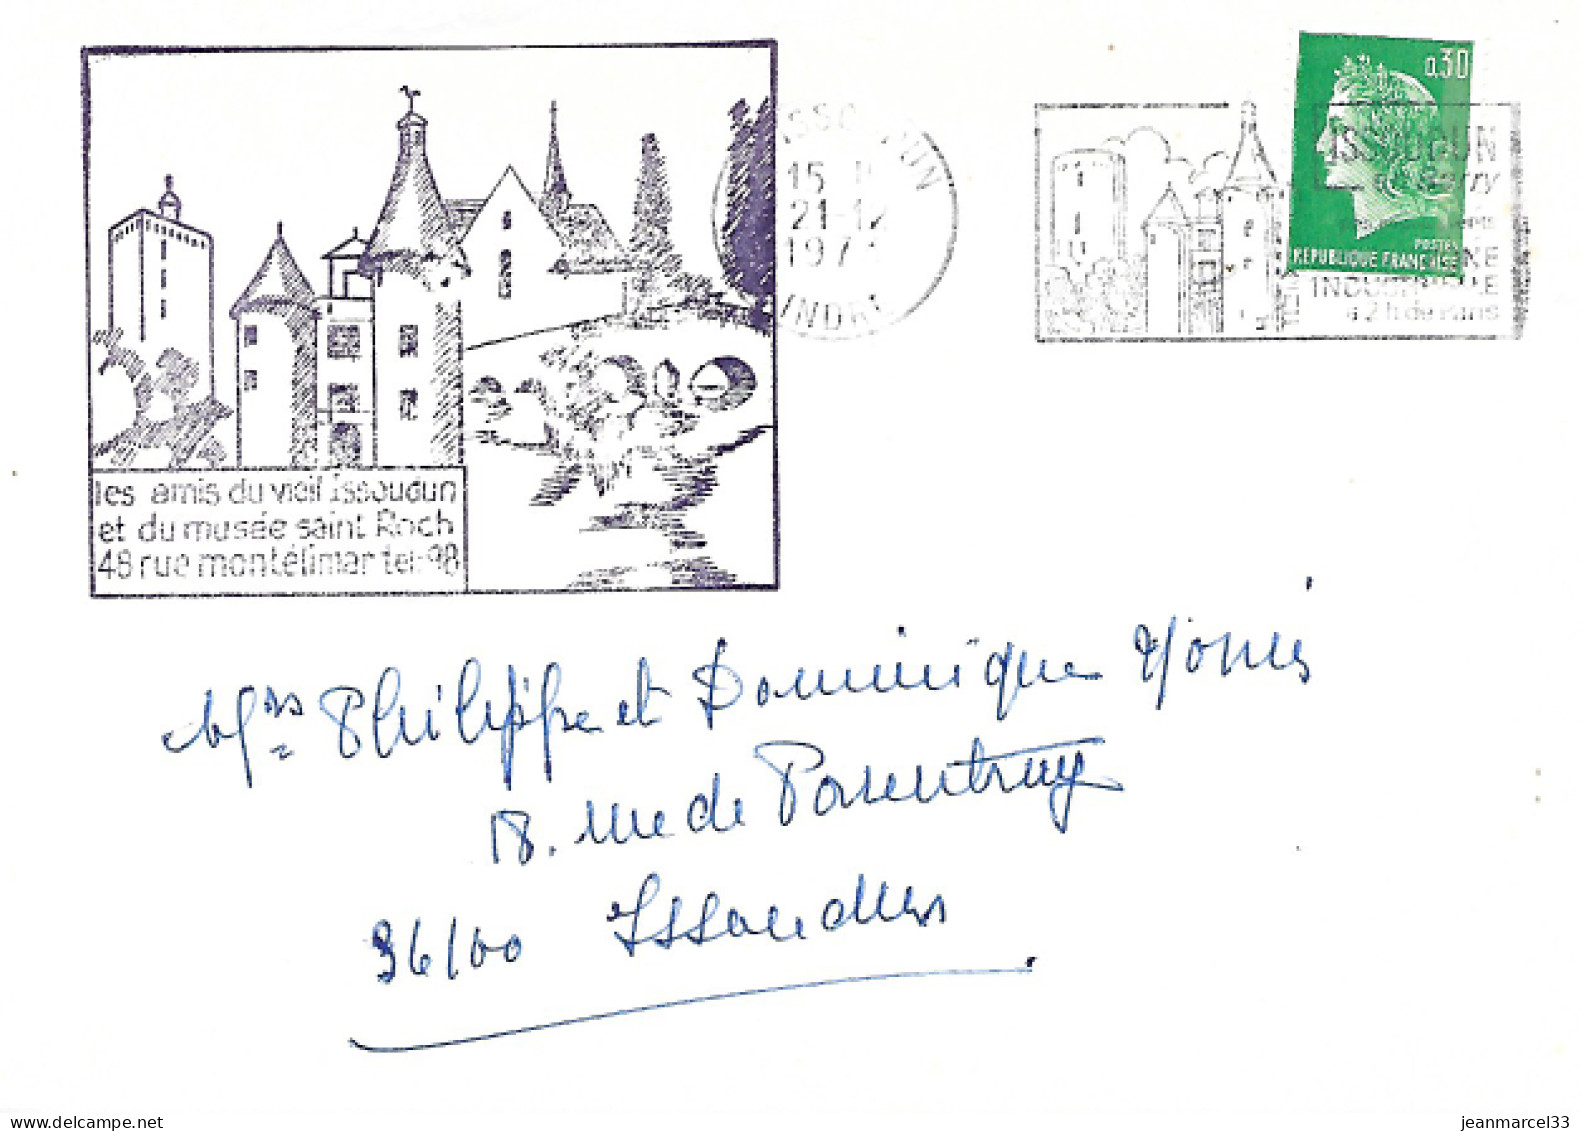 les amis du vieil Issoudun
et du musée saint Roch
48 rue montélimar tel:98
ISSOUDUN
15 H
21-12
197
INDRE
0,30
POSTES
REPUBLIQUE FRANÇAISE
ISSOUDUN
en Berry
INDUSTRIELLE
à 2 h de Paris
Mrs Philippe et Dominique
18. rue de Parentruy
36100 Issoudun
jeanmarcel33